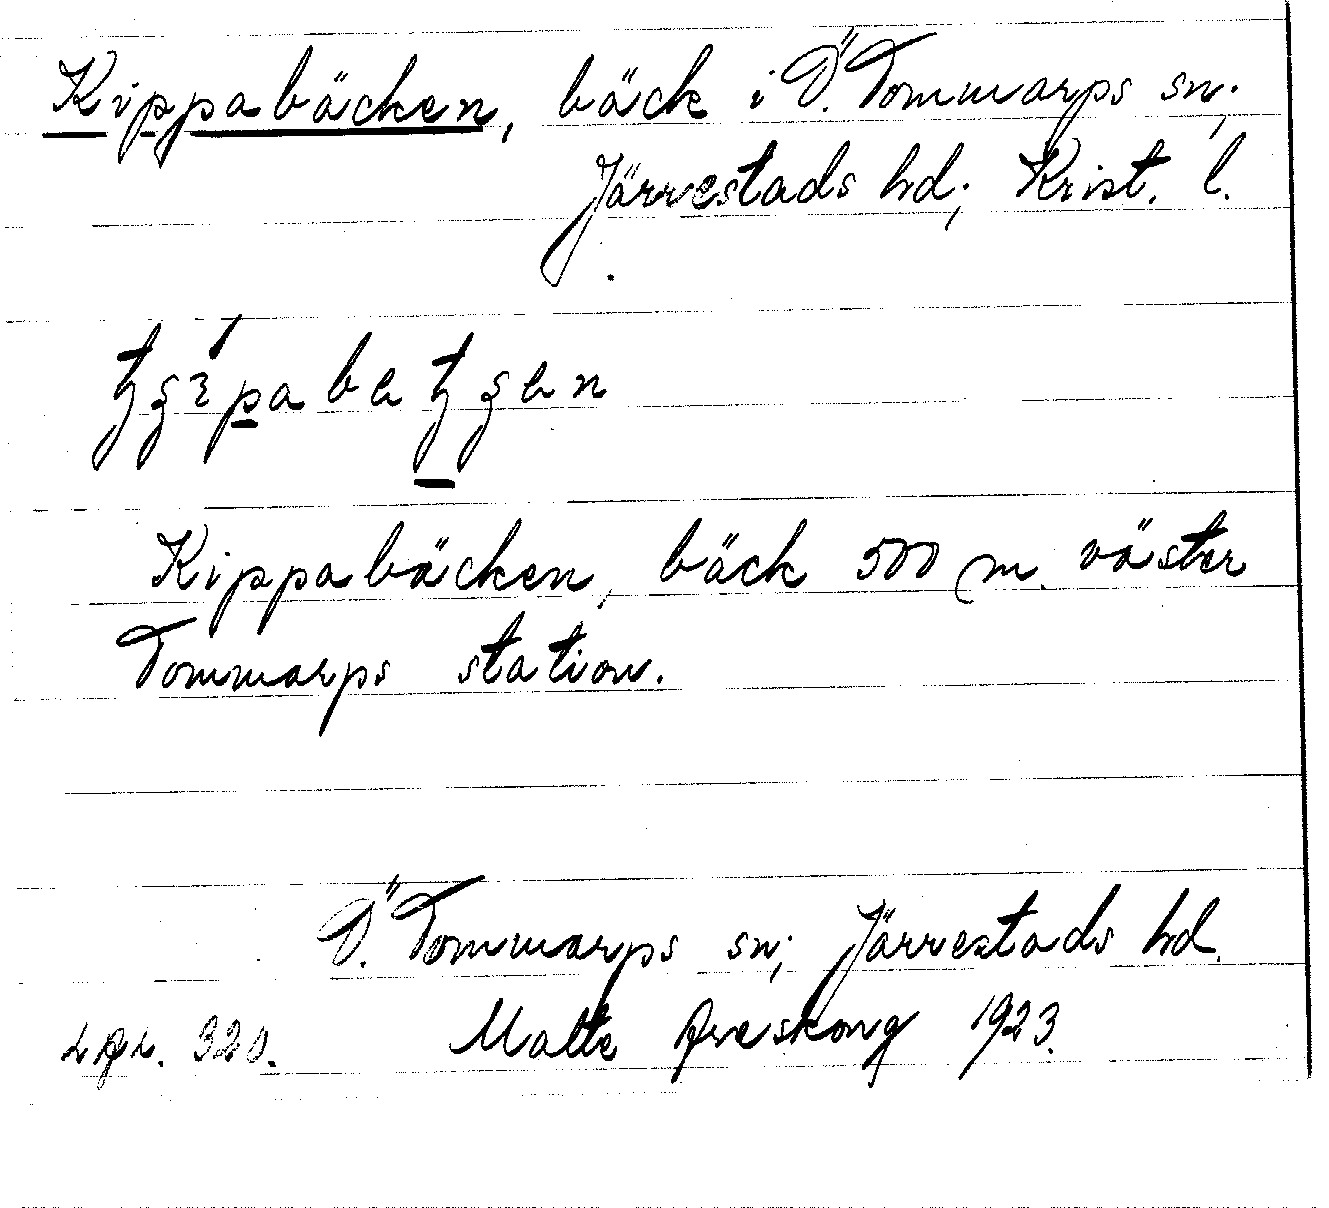 Kippabäcken, bäck i Ö. Tommarps sn,
Järrestads hd, Krist. l.
Kippabäcken, bäck 500 m. väster
Tommarps station.
Ö. Tommarps sn, Järrestads hd.
320. Malte Areskoug 1923.